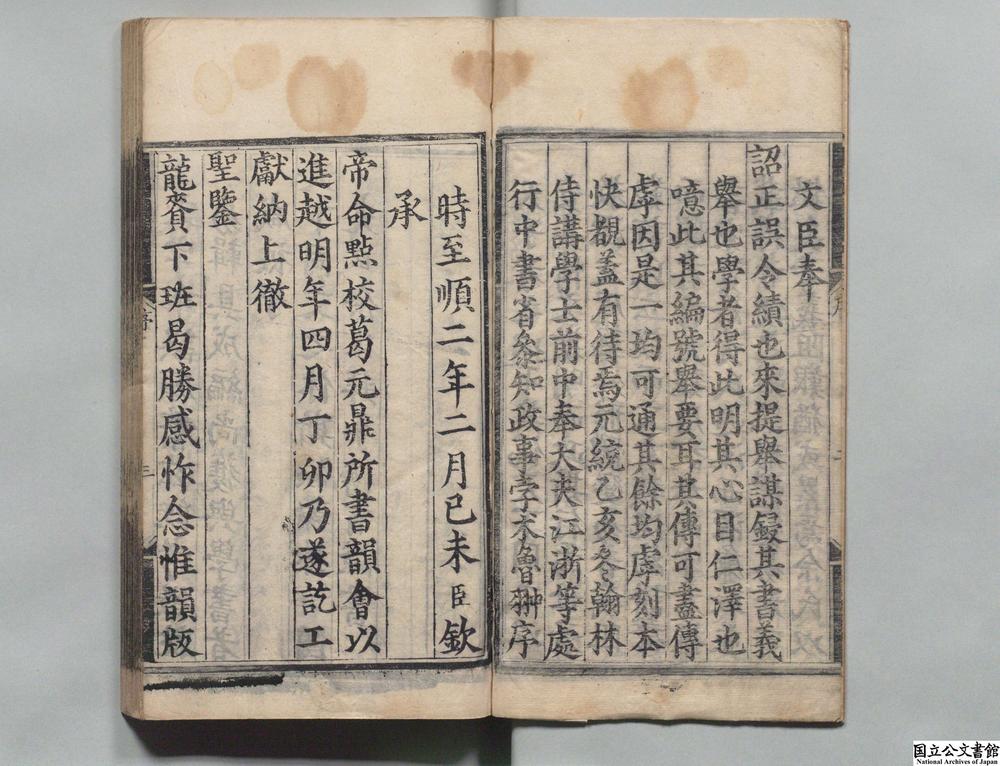 文臣奉
詔正誤令績也來提舉謀鋟其書義
舉也學者得此明其心目仁澤也
噫此其編號舉要耳其傳可盡傳
虖因是一均可通其餘均虖刻本
快覩蓋有待焉元統乙亥冬翰林
侍講學士前中奉大夫江浙等處
行中書省叅知政事孛朮魯翀序
時至順二年二月已未臣欽
承
帝命點校葛元鼎所書韻會以
進越明年四月丁卯乃遂訖工
獻納上徹
聖鑒
龍賚下班曷勝感怍念惟韻版
序
三
国立公文書館
National Archives of Japan